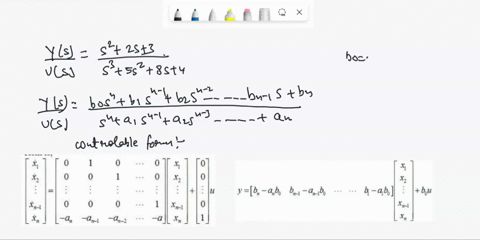 Y(s)/U(s) = s² + 2s + 3 / s³ + 5s² + 8s + 4
bo=
Y(s)/U(s) = b0sⁿ + b1 sⁿ⁻¹ + b2 sⁿ⁻² ... ... bn-1 s + bn / sⁿ + a1 sⁿ⁻¹ + a2 sⁿ⁻³ ...... + an
controlable form:-
[ẋ₁ ẋ₂ ⋮ ẋₙ₋₁ ẋₙ] = [0 1 0 ⋯ 0; 0 0 1 ⋯ 0; ⋮ ⋮ ⋮ ⋮; 0 0 0 ⋯ 1; -aₙ -aₙ₋₁ -aₙ₋₂ ⋯ -a] [x₁ x₂ ⋮ xₙ₋₁ xₙ] + [0 0 ⋮ 0 1] u
y = [bₙ - aₙb₀ bₙ₋₁ - aₙ₋₁b₀ ⋯ ⋯ b₁ - a₁b₀] [x₁ x₂ ⋮ xₙ₋₁ xₙ] + b₀u